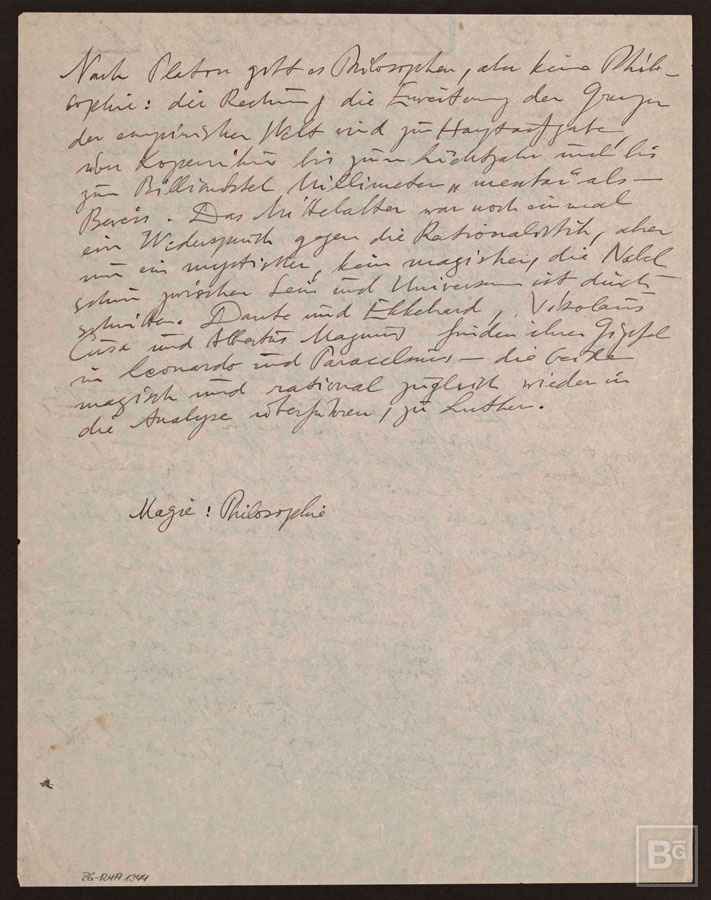 Nach Platon gibt es Philosophen, aber keine Philo-
sophie: die Rechnung, die Erweiterung der Grenzen
der empirischen Welt wird zur Hauptaufgabe,
von Kopernikus bis zum Lichtjahr und bis
zum Billiardstel Millimeter „mental" als
Beweis. Das Mittelalter war noch einmal
ein Widerspruch gegen die Rationalistik, aber
nur ein mystischer, kein magischer, die Nabel
schnur zwischen Sein und Universum ist durch-
schnitten. Dante und Ekkehard, Nikolaus
Cusa und Albertus Magnus finden ihren Gipfel
in Leonardo und Paracelsus – die beide
magisch und rational zugleich wieder in
die Analyse überführen, zu Luther.
Magie : Philosophie
BG-RHA 1344
BG